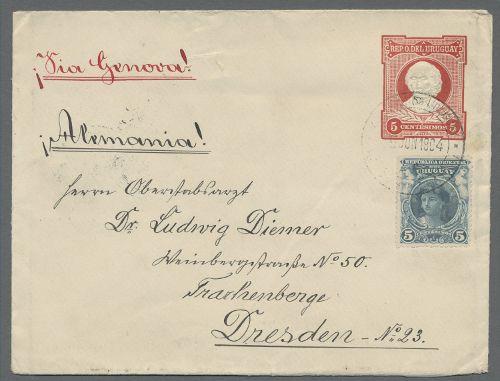 ¡Via Genova!
REP. O. DEL URUGUAY
5 CENTÉSIMOS 5
JUN 1904
¡Alemania!
REPÚBLICA ORIENTAL
URUGUAY
5 5
Herrn Oberstabsarzt
Dr. Ludwig Diemer
Weinbergstraße No 50.
Trachenberge
Dresden - No 23.